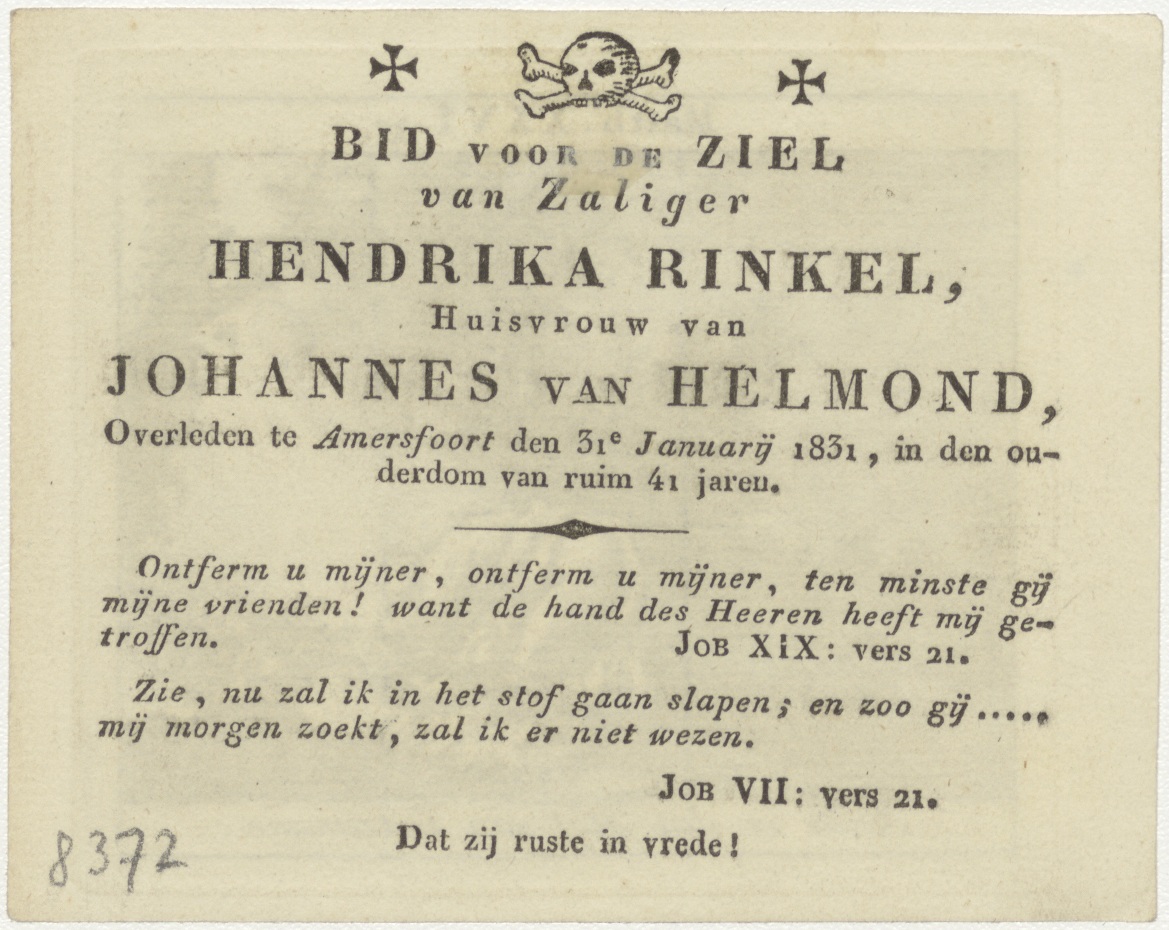 BID VOOR DE ZIEL
van Zaliger
HENDRIKA RINKEL,
Huisvrouw van
JOHANNES VAN HELMOND,
Overleden te Amersfoort den 31e Januarij 1831, in den ou-
derdom van ruim 41 jaren.
Ontferm u mijner, ontferm u mijner, ten minste gij
mijne vrienden! want de hand des Heeren heeft mij ge-
troffen. JOB XIX: vers 21.
Zie, nu zal ik in het stof gaan slapen; en zoo gij.....
mij morgen zoekt, zal ik er niet wezen.
JOB VII: vers 21.
Dat zij ruste in vrede!
8372